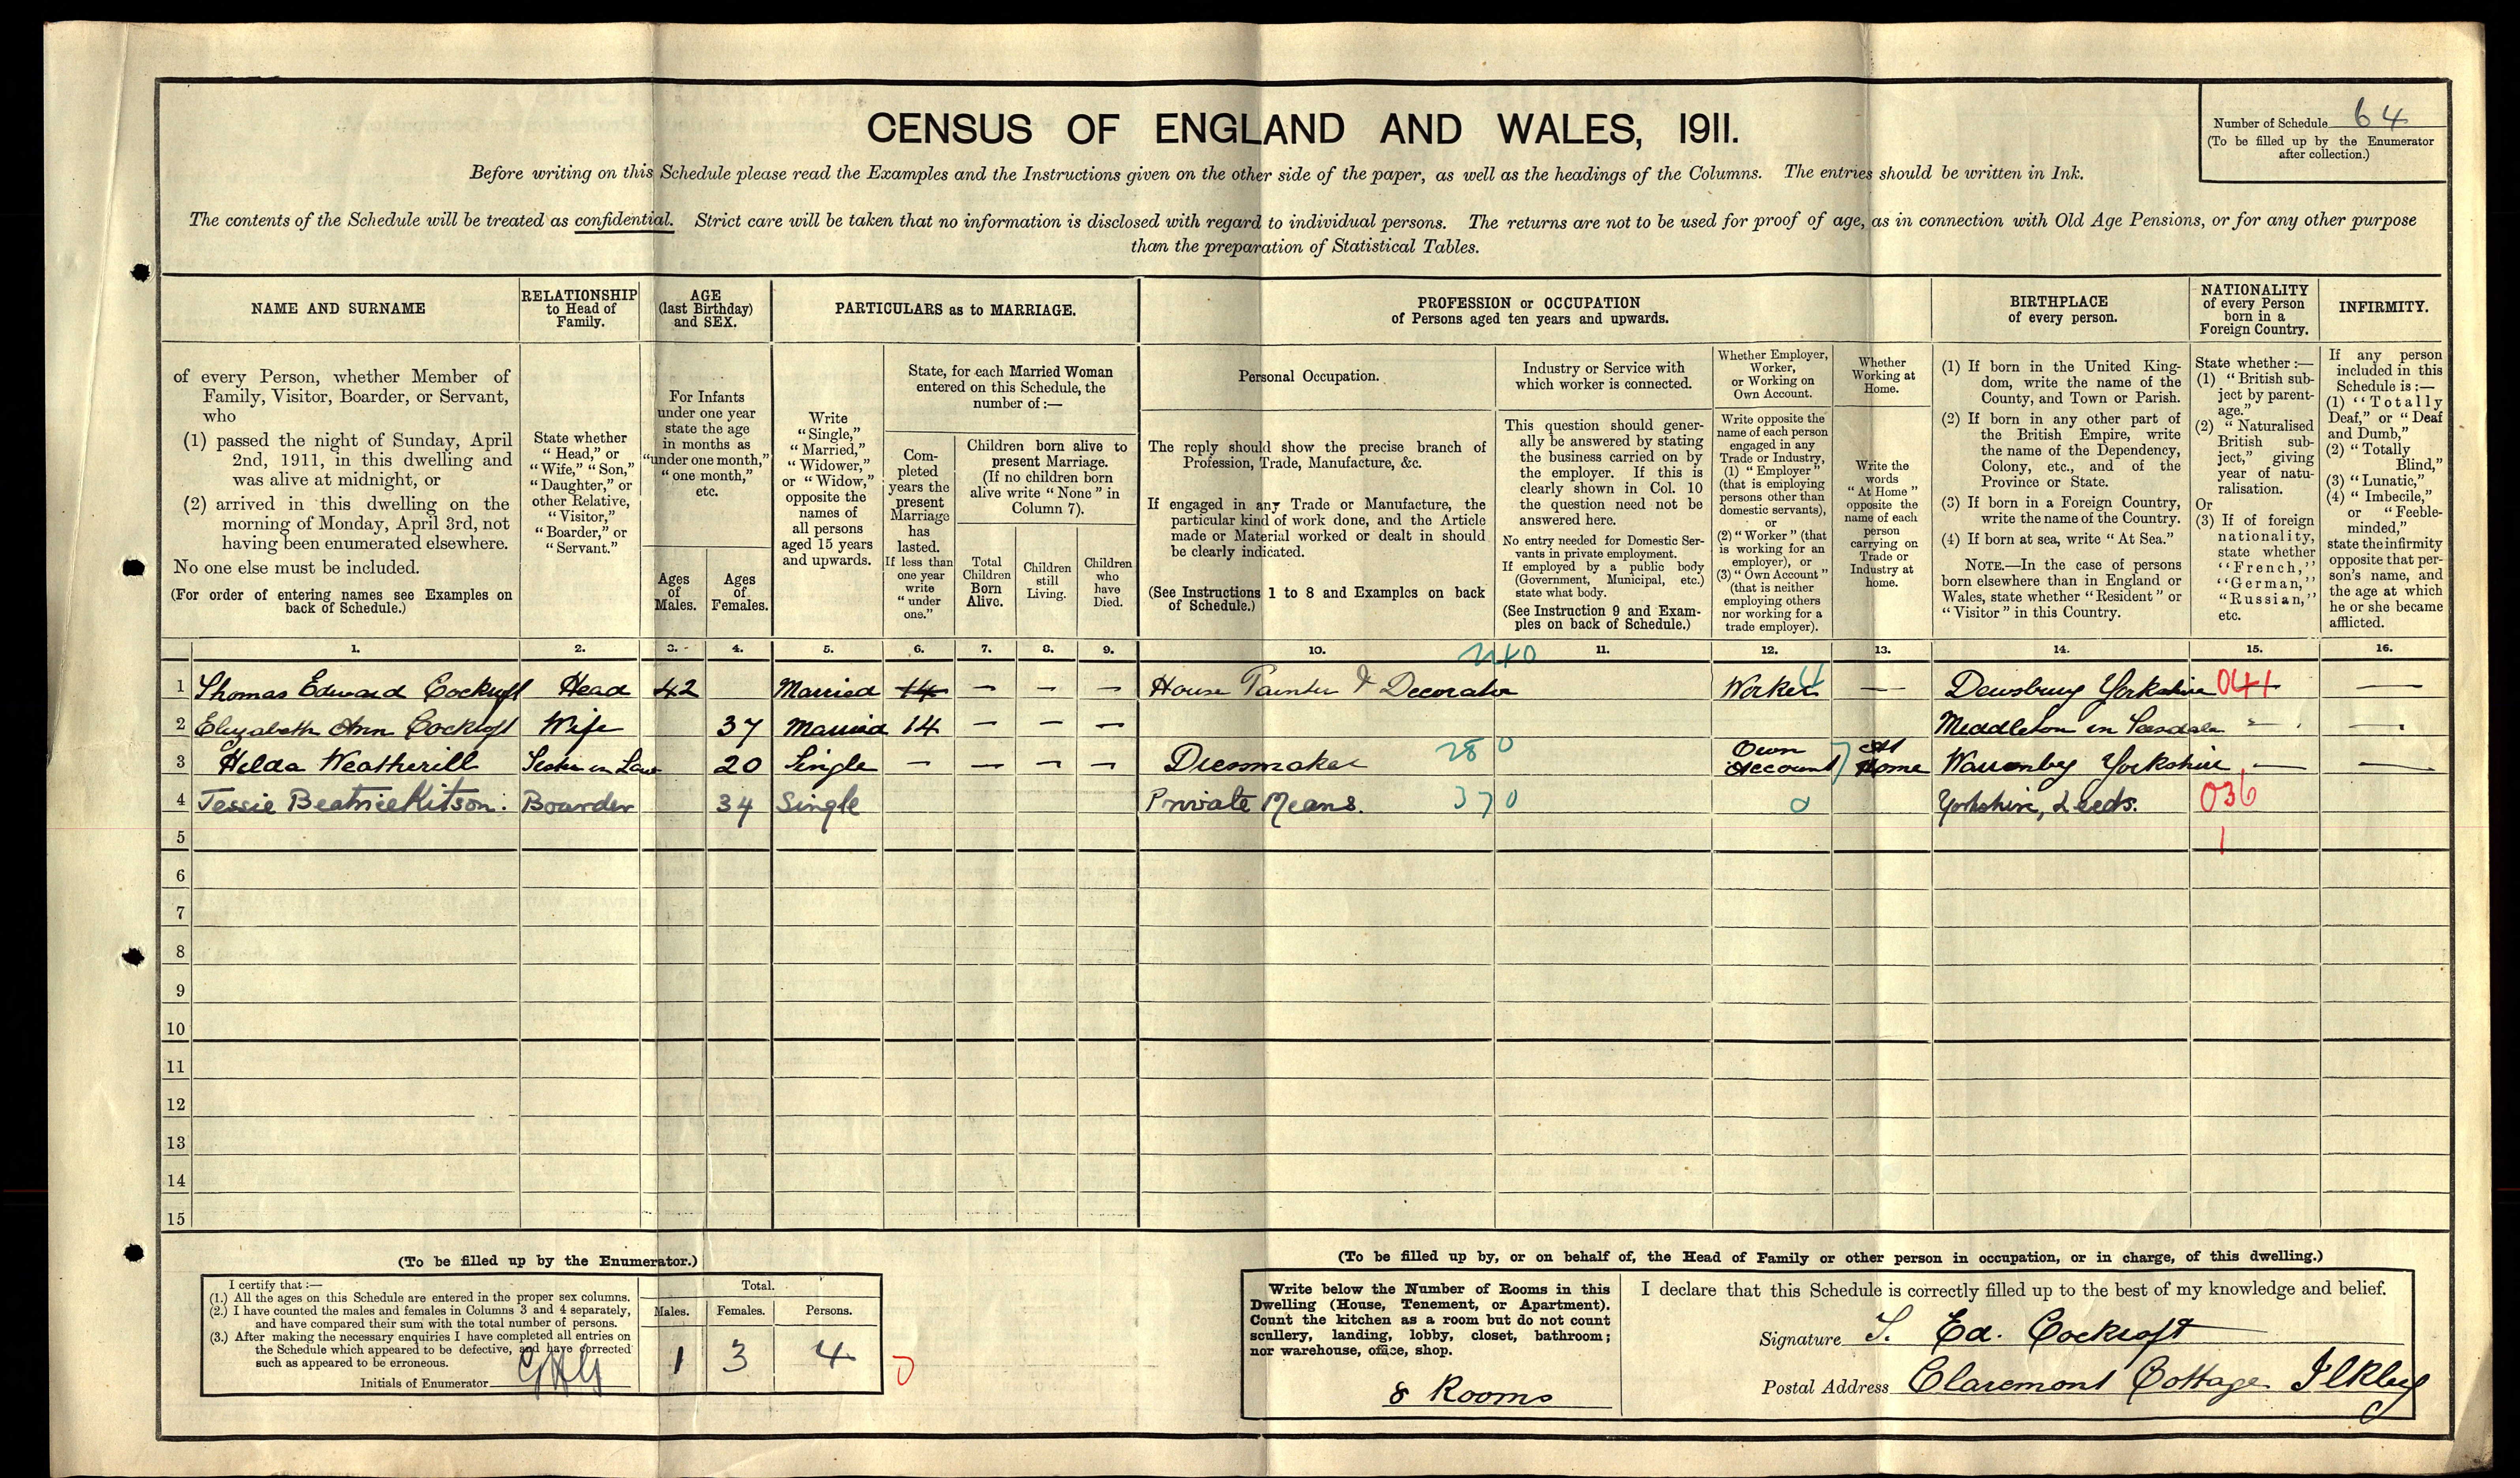 CENSUS OF ENGLAND AND WALES, 1911.
Number of Schedule 64
(To be filled up by the Enumerator
after collection.)
Before writing on this Schedule please read the Examples and the Instructions given on the other side of the paper, as well as the headings of the Columns. The entries should be written in Ink.
The contents of the Schedule will be treated as confidential. Strict care will be taken that no information is disclosed with regard to individual persons. The returns are not to be used for proof of age, as in connection with Old Age Pensions, or for any other purpose
than the preparation of Statistical Tables.
NAME AND SURNAME
of every Person, whether Member of
Family, Visitor, Boarder, or Servant,
who
(1) passed the night of Sunday, April
2nd, 1911, in this dwelling and
was alive at midnight, or
(2) arrived in this dwelling on the
morning of Monday, April 3rd, not
having been enumerated elsewhere.
No one else must be included.
(For order of entering names see Examples on
back of Schedule.)
RELATIONSHIP
to Head of
Family.
State whether
"Head," or
"Wife," "Son,"
"Daughter," or
other Relative,
"Visitor,"
"Boarder," or
"Servant."
AGE
(last Birthday)
and SEX.
For Infants
under one year
state the age
in months as
"under one month,"
"one month,"
etc.
Ages
of
Males.
Ages
of
Females.
PARTICULARS as to MARRIAGE.
Write
"Single,"
"Married,"
"Widower,"
or "Widow,"
opposite the
names of
all persons
aged 15 years
and upwards.
State, for each Married Woman
entered on this Schedule, the
number of :—
Com-
pleted
years the
present
Marriage
has
lasted.
If less than
one year
write
"under
one."
Children born alive to
present Marriage.
(If no children born
alive write "None" in
Column 7).
Total
Children
Born
Alive.
Children
still
Living.
Children
who
have
Died.
PROFESSION or OCCUPATION
of Persons aged ten years and upwards.
Personal Occupation.
The reply should show the precise branch of
Profession, Trade, Manufacture, &c.
If engaged in any Trade or Manufacture, the
particular kind of work done, and the Article
made or Material worked or dealt in should
be clearly indicated.
(See Instructions 1 to 8 and Examples on back
of Schedule.)
Industry or Service with
which worker is connected.
This question should gener-
ally be answered by stating
the business carried on by
the employer. If this is
clearly shown in Col. 10
the question need not be
answered here.
No entry needed for Domestic Ser-
vants in private employment.
If employed by a public body
(Government, Municipal, etc.)
state what body.
(See Instruction 9 and Exam-
ples on back of Schedule.)
Whether Employer,
Worker,
or Working on
Own Account.
Write opposite the
name of each person
engaged in any
Trade or Industry,
(1) "Employer"
(that is employing
persons other than
domestic servants),
or
(2) "Worker" (that
is working for an
employer), or
(3) "Own Account"
(that is neither
employing others
nor working for a
trade employer).
Whether
Working at
Home.
Write the
words
"At Home"
opposite the
name of each
person
carrying on
Trade or
Industry at
home.
BIRTHPLACE
of every person.
(1) If born in the United King-
dom, write the name of the
County, and Town or Parish.
(2) If born in any other part of
the British Empire, write
the name of the Dependency,
Colony, etc., and of the
Province or State.
(3) If born in a Foreign Country,
write the name of the Country.
(4) If born at sea, write "At Sea."
NOTE.—In the case of persons
born elsewhere than in England or
Wales, state whether "Resident" or
"Visitor" in this Country.
NATIONALITY
of every Person
born in a
Foreign Country.
State whether :—
(1) "British sub-
ject by parent-
age."
(2) "Naturalised
British sub-
ject," giving
year of natu-
ralisation.
Or
(3) If of foreign
nationality,
state whether
"French,"
"German,"
"Russian,"
etc.
INFIRMITY.
If any person
included in this
Schedule is :—
(1) "Totally
Deaf," or "Deaf
and Dumb,"
(2) "Totally
Blind,"
(3) "Lunatic,"
(4) "Imbecile,"
or "Feeble-
minded,"
state the infirmity
opposite that per-
son's name, and
the age at which
he or she became
afflicted.
1. 2. 3. 4. 5. 6. 7. 8. 9. 10. 11. 12. 13. 14. 15. 16.
1 Thomas Edward Cockroft Head 42 Married 14 — — — House Painter & Decorator Worker — Dewsbury Yorkshire 041 —
2 Elizabeth Ann Cockroft Wife 37 Married 14 — — — Middleton in Teesdale — —
3 Hilda Weatherill Sister in Law 20 Single — — — — Dressmaker 280 Own Account At Home Warrenby Yorkshire — —
4 Jessie Beatrice Kitson. Boarder 34 Single Private Means. 370 0 Yorkshire, Leeds. 036
5 1
6
7
8
9
10
11
12
13
14
15
(To be filled up by the Enumerator.)
I certify that :—
(1.) All the ages on this Schedule are entered in the proper sex columns.
(2.) I have counted the males and females in Columns 3 and 4 separately,
and have compared their sum with the total number of persons.
(3.) After making the necessary enquiries I have completed all entries on
the Schedule which appeared to be defective, and have corrected
such as appeared to be erroneous.
Initials of Enumerator
Total.
Males. Females. Persons.
1 3 4
(To be filled up by, or on behalf of, the Head of Family or other person in occupation, or in charge, of this dwelling.)
Write below the Number of Rooms in this
Dwelling (House, Tenement, or Apartment).
Count the kitchen as a room but do not count
scullery, landing, lobby, closet, bathroom;
nor warehouse, office, shop.
8 Rooms
I declare that this Schedule is correctly filled up to the best of my knowledge and belief.
Signature T. Ed. Cockroft
Postal Address Claremont Cottage Ilkley